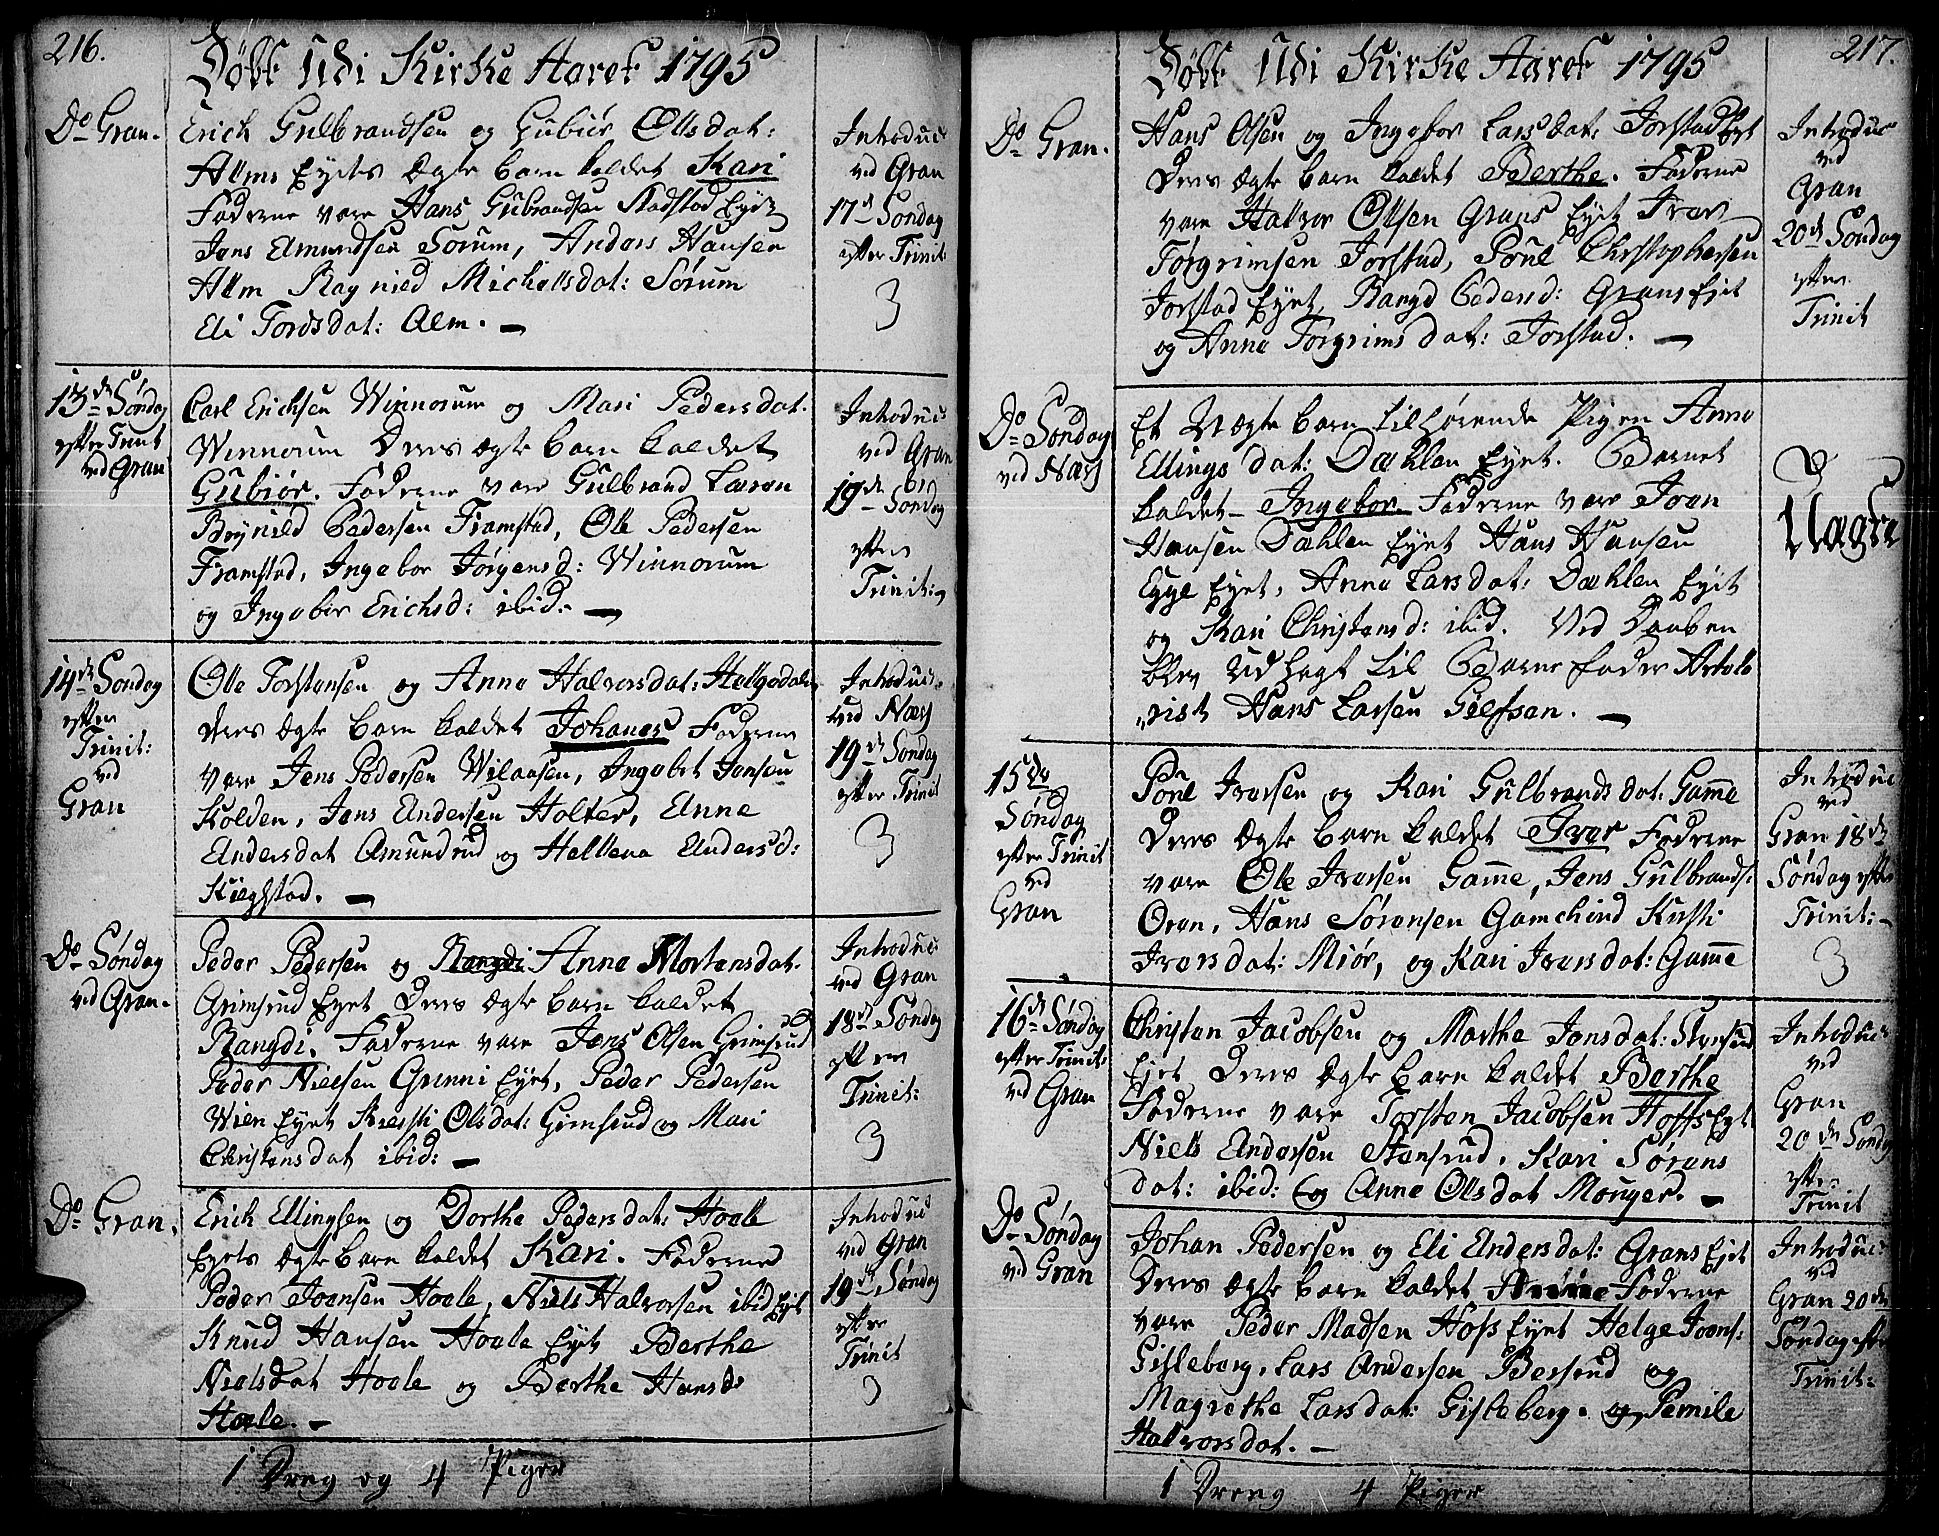 216.
Døbt Udi Kirke Aaret 1795
Do Gran.
Erich Gulbrandsen og Gubiør Olsdat:
Alms Eyets Ægte barn kaldet Kari
Faderne vare Hans Gulbrandsen Eyet
Jens Amundsen Sørum, Anders Hansen
Alm Ragnild Michelsdat: Sørum
Eli Tordsdat: Alm. —
Introduc:
ved Gran
17d Søndag
efter Trinit:
3
13de Søndag
efter Trinit
ved Gran
Carl Erichsen Winnorum og Mari Pedersdat:
Winnorum Deres Ægte barn kaldet
Gubiør. Faderne vare Gulbrand Larsen
Pedersen Framstad, Ole Pedersen
Framstad, Ingebor Jørgensd: Winnorum
og Ingebor Erichsd: ibid. —
Introduc:
ved Gran
19de Søndag
efter
Trinit:
14de Søndag
efter
Trinit:
ved
Gran
Ole Torstensen og Anne Halvorsdat: Helgedalen
deres Ægte barn kaldet Johanes Faderne
vare Jens Pedersen Ingebret Jensen
Kolden, Jens Andersen Holter, Anne
Andersdat Amundrud og Hellena Andersd:
—
Introduc:
ved Næss
19de Søndag
efter Trinit
3
Do Søndag
ved Gran.
Peder Pedersen og Rangdi Anne Mortensdat:
Grimsrud Eyet Deres Ægte barn kaldet
Rangdi. Faderne vare Jens Olsen Grimsrud
Peder Nielsen Grinni Eyet, Peder Pedersen
Wien Eyet Olsdat: Grimsrud og Mari
Christensdat ibid: —
Introduc:
ved Gran
18de Søndag
efter
Trinit:
3
Do Gran.
Erich Ellingsen og Dorthe Pedersdat: Hoele
Eyets Ægte barn kaldet Kari. Faderne
Peder Joensen Hoele, Niels Halvorsen ibid Eyet
Knud Hansen Hoele Eyet Berthe
Nielsdat Hoele og Berthe Hansd:
Hoele. —
Introduc
ved Gran
19de Søndag
efter
Trinit
3
1 Dreng og 4 Piger
217.
Døbt Udi Kirke Aaret 1795
Do Gran.
Hans Olsen og Ingebor Larsdat: Jorstad Eyet
Deres Ægte barn kaldet Berthe. Faderne
vare Halvor Olsen Grans Eyet Iver
Torgrimsen Jorstad, Poul Christophersen
Jorstad Eyet, Rangd Pedersd: Grans Ejet
og Anne Torgrimsdat: Jorstad. —
Introduc
ved
Gran
20de Søndag
efter
Trinit
Do Søndag
ved Næss
Et Uægte barn tilhørende Pigen Anne
Ellingsdat: Dæhlen Eyet. Barnet
kaldet Ingebor Faderne vare Joen
Hansen Dæhlen Eyet Hans Hansen
Egge Eyet, Anne Larsdat: Dæhlen Eyet
og Kari Christensd: ibid. Ved Daaben
blev Udlagt til Barnefader Artole
rist Hans Larsen —
Uægte
15de
Søndag
efter Trinit
ved
Gran
Poul Iversen og Kari Gulbrandsdat: Gamme
Deres Ægte barn kaldet Iver Faderne
vare Ole Iversen Gamme, Jens Gulbrands:
Oren, Hans Sørensen Gamehind Kirsti
Iversdat: Miør, og Kari Iversdat: Gamme
Introduc
ved
Gran 18de
Søndag efter
Trinit:
3
16de Søndag
efter Trinit:
ved Gran
Christen Jacobsen og Marthe Jonsdat: Stensrud
Ejet Deres Ægte barn kaldet Berthe
Faderne vare Torsten Jacobsen Hoffs Eyet
Niels Andersen Stensrud, Kari Sørens
dat: ibid: og Anne Olsdat Monger. —
Introduc:
ved
Gran
20de Søndag
efter
Trinit
Do Søndag
ved Gran
Johan Pedersen og Eli Andersdat: Grans Ejet
Deres Ægte barn kaldet Anne Faderne
vare Peder Madsen Hofs Eyet Helge Joens:
Gisleberg, Lars Andersen Bersrud og
Magrethe Larsdat: Gisleberg. og Pernile
Halvorsdat. —
Introduc:
ved
Gran 20de
Søndag efter
Trinit:
1 Dreng 4 Piger